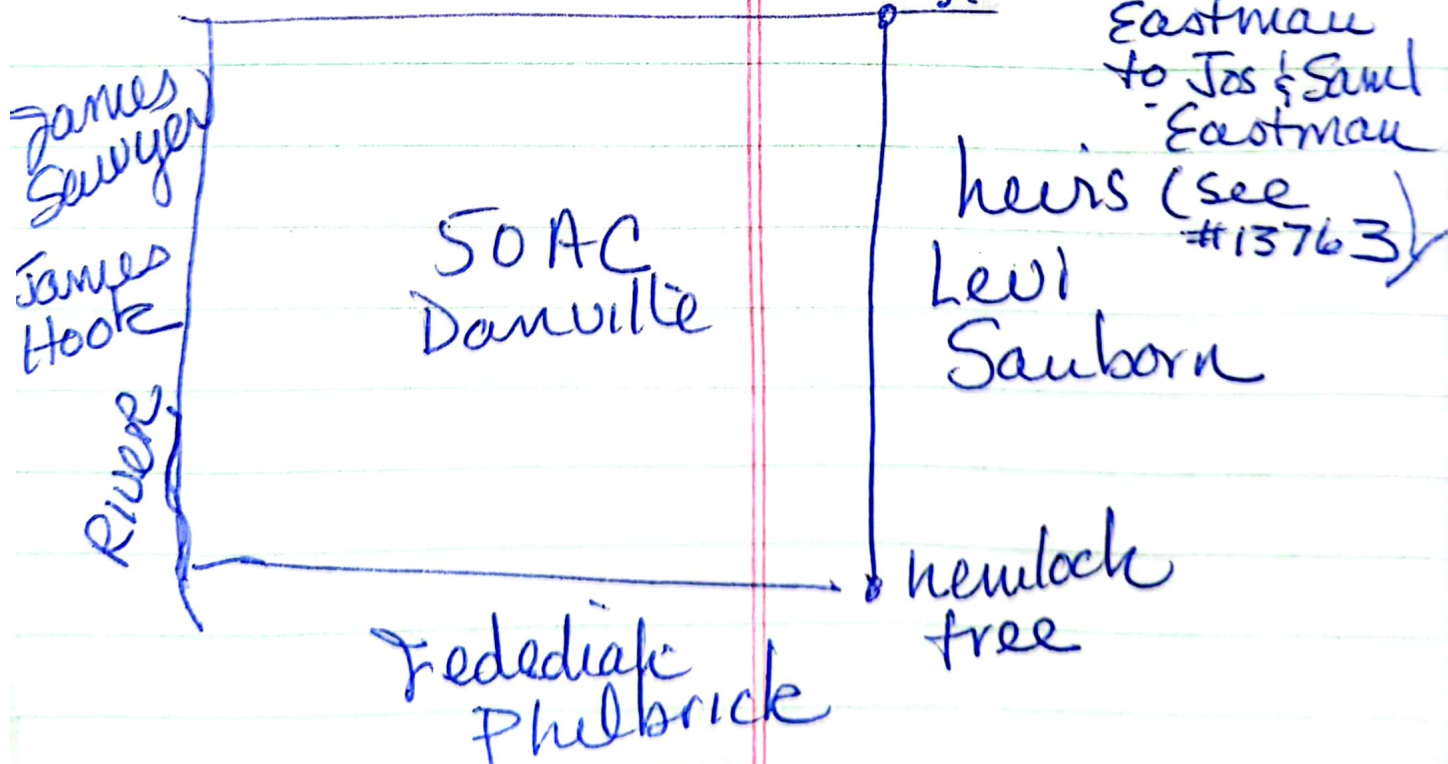 Eastman
to Jos & Saml
Eastman
heirs (see
#13763)
Levi
Sanborn
James
Sawyer
James
Hook
River
50 AC
Danville
hemlock
tree
Jedediah
Philbrick